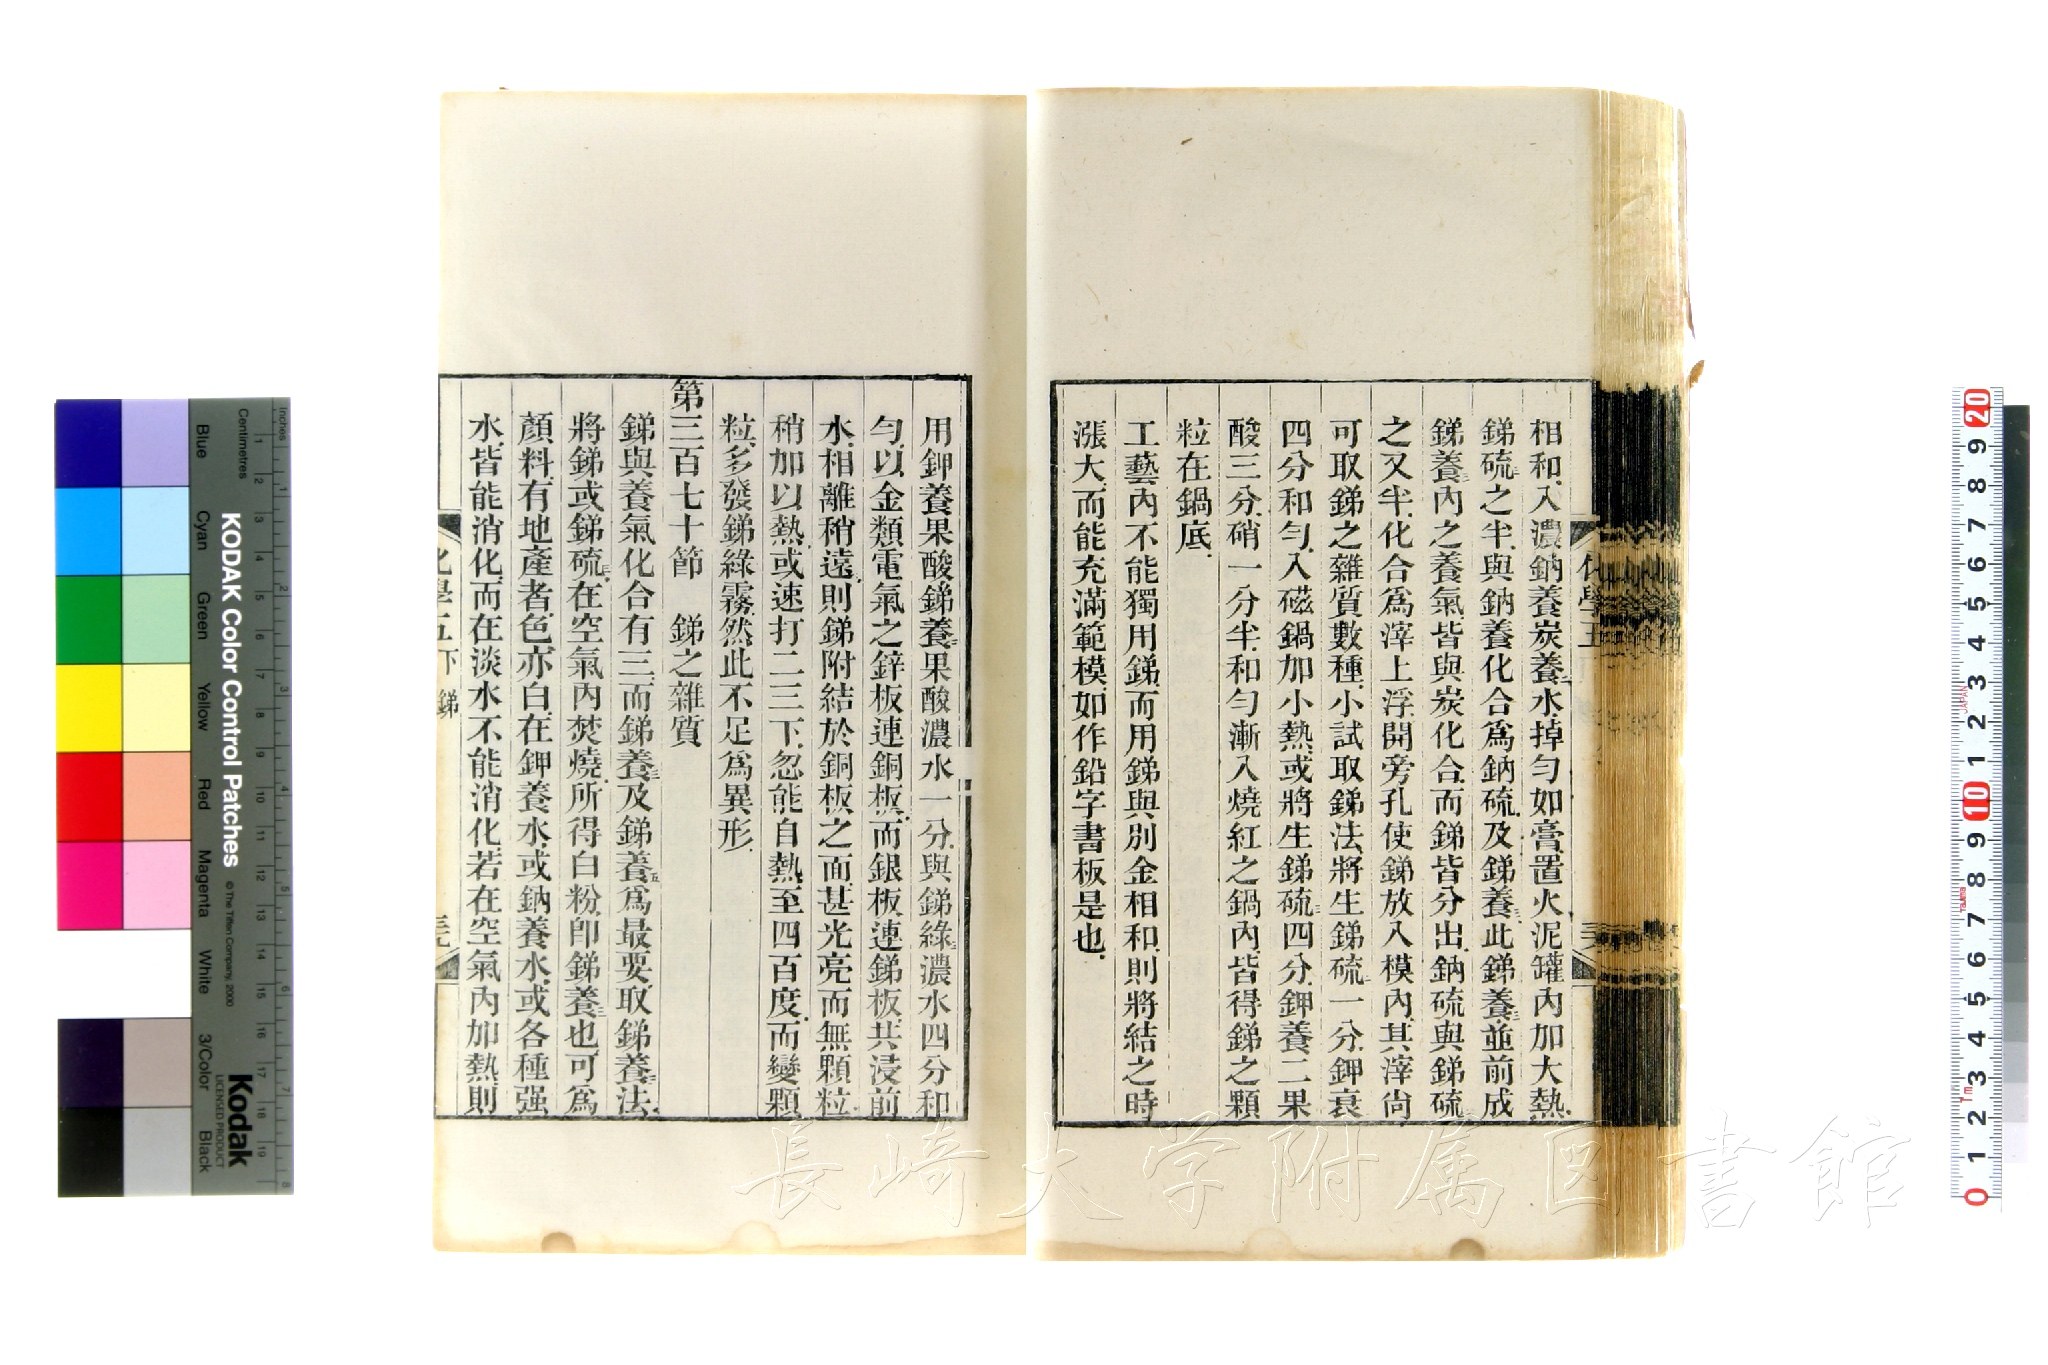 相和入濃鈉養炭養二水掉勻如膏置火泥罐內加大熱
銻硫三之半與鈉養化合爲鈉硫及銻養三此銻養三並前成
銻養三內之養氣皆與炭化合而銻皆分出鈉硫與銻硫三
之又半化合爲滓上浮開旁孔使銻放入模內其滓尚
可取銻之雜質數種小試取銻法將生銻硫三一分鉀衰
四分和勻入磁鍋加小熱或將生銻硫三四分鉀養二果
酸三分硝一分半和勻漸入燒紅之鍋內皆得銻之顆
粒在鍋底
工藝內不能獨用銻而用銻與別金相和則將結之時
漲大而能充滿範模如作鉛字書板是也
化學五
用鉀養果酸銻養三果酸濃水一分與銻綠三濃水四分和
勻以金類電氣之鋅板連銅板而銀板連銻板共浸前
水相離稍遠則銻附結於銅板之面甚光亮而無顆粒
稍加以熱或速打二三下忽能自熱至四百度而變顆
粒多發銻綠霧然此不足爲異形
第三百七十節 銻之雜質
銻與養氣化合有三而銻養三及銻養五爲最要取銻養三法
將銻或銻硫三在空氣內焚燒所得白粉卽銻養三也可爲
顏料有地產者色亦白在鉀養水或鈉養水或各種强
水皆能消化而在淡水不能消化若在空氣內加熱則
化學五下 銻
KODAK Color Control Patches
© The Tiffen Company, 2000
Kodak
LICENSED PRODUCT
Inches
Centimetres
Blue
Cyan
Green
Yellow
Red
Magenta
White
3/Color
Black
JAPAN
長崎大学附属図書館